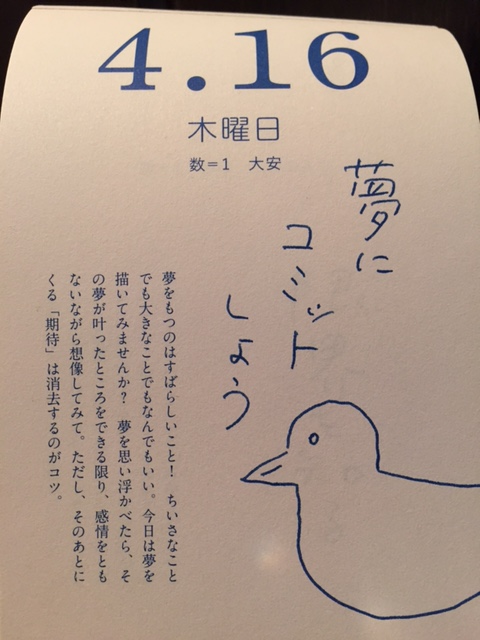 4.16
木曜日
数=1 大安
夢に
コミット
しよう
夢をもつのはすばらしいこと! ちいさなこと
でも大きなことでもなんでもいい。今日は夢を
描いてみませんか? 夢を思い浮かべたら、そ
の夢が叶ったところをできる限り、感情をとも
ないながら想像してみて。ただし、そのあとに
くる「期待」は消去するのがコツ。